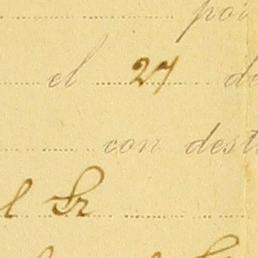 por
el 27 de
con dest
l Sr